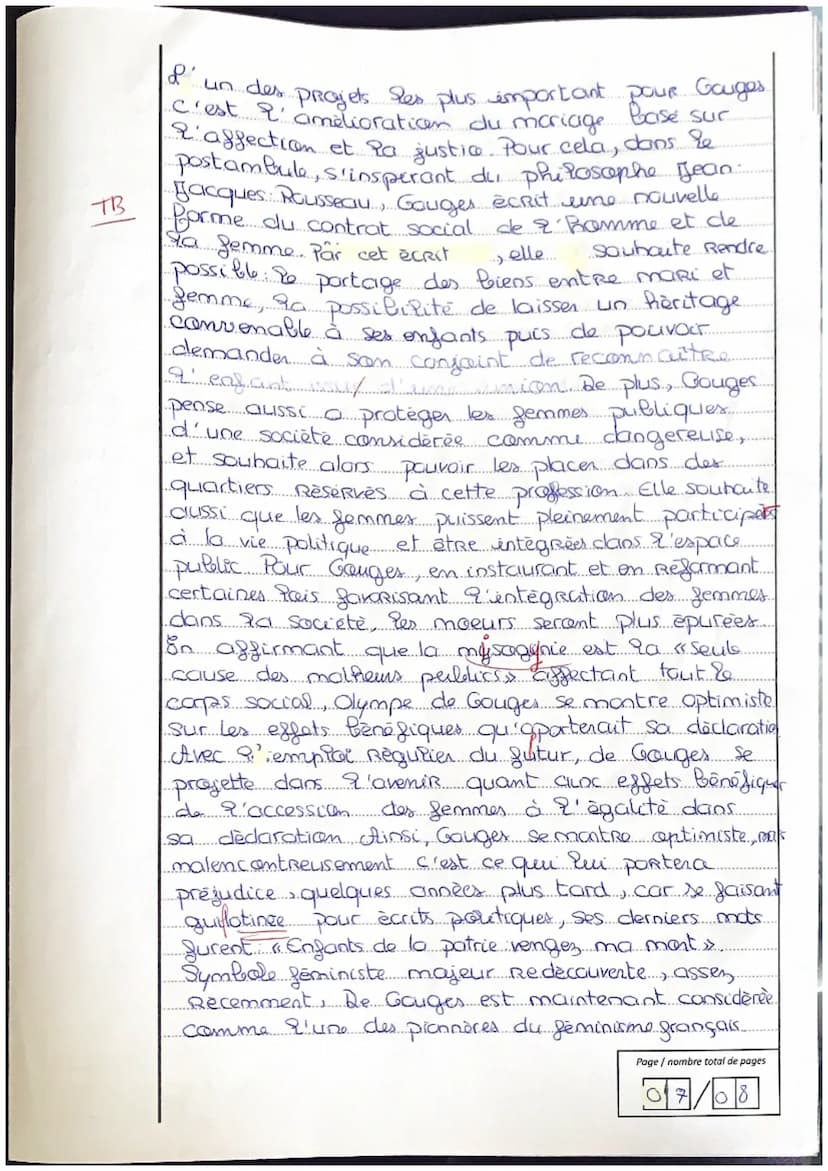 L'un des projets les plus important pour Gouges
c'est l'amélioration du mariage basé sur
l'affection et la justice. Pour cela, dans le
postambule, s'insperant du philosophe Jean-
Jacques Rousseau, Gouges écrit une nouvelle
TB
forme du contrat social de l'homme et de
la femme. Par cet écrit, elle souhaite rendre
possible : le partage des biens entre mari et
femme, la possibilité de laisser un héritage
convenable à ses enfants puis de pouvoir
demander à son conjoint de reconnaître
l'enfant d'une union. De plus, Gouges
pense aussi a protéger les femmes publiques
d'une société considérée comme dangereuse,
et souhaite alors pouvoir les placer dans des
quartiers réservés à cette profession. Elle souhaite
aussi que les femmes puissent pleinement participer
à la vie politique et être intégrées dans l'espace
public. Pour Gouges, en instaurant et en réformant
certaines lois favorisant l'intégration des femmes
dans la société, les moeurs seront plus épurées.
En affirmant que la mysogynie est la « seule
cause des malheurs publics » affectant tout le
corps social, Olympe de Gouges se montre optimiste
sur les effets bénéfiques qu'apporterait sa déclaratio
Avec l'emploi régulier du futur, de Gouges se
projette dans l'avenir quant aux effets bénéfiques
de l'accession des femmes à l'égalité dans
sa déclaration. Ainsi, Gouges se montre optimiste, mais
malencontreusement c'est ce qui lui portera
préjudice, quelques années plus tard, car se faisant
guillotinée pour écrits politiques, ses derniers mots
furent : « Enfants de la patrie vengez ma mort ».
Symbole féministe majeur redécouverte, assez
récemment, De Gouges est maintenant considérée
comme l'une des pionnères du féminisme français.
Page / nombre total de pages
07/08